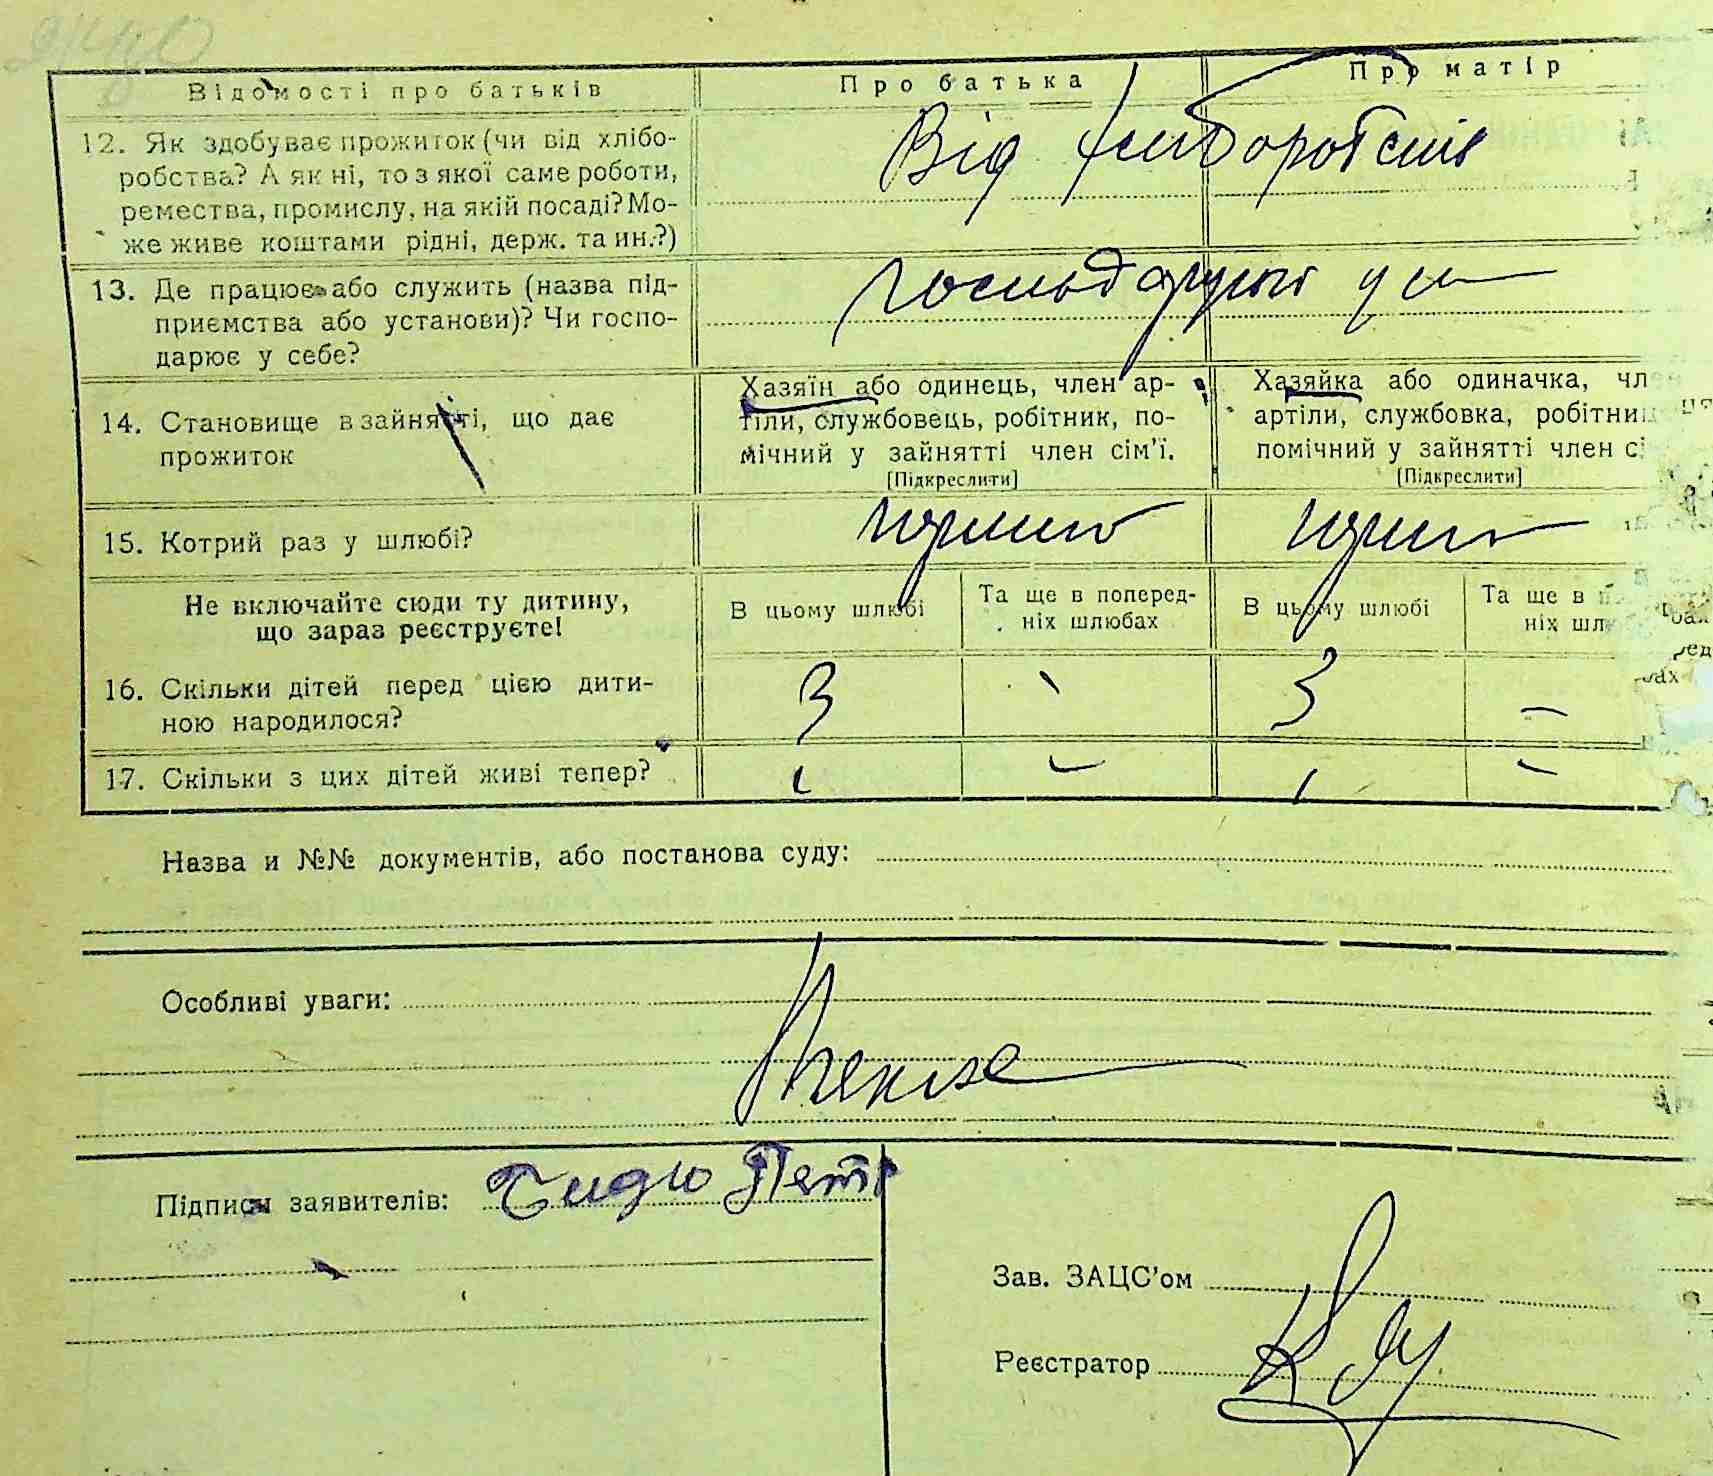 Відомості про батьків
Про батька
Про матір
12. Як здобуває прожиток (чи від хлібо-
робства? А як ні, то з якої саме роботи,
ремества, промислу, на якій посаді? Мо-
же живе коштами рідні, держ. та ин.?)
Від
13. Де працює або служить (назва під-
приємства або установи)? Чи госпо-
дарює у себе?
14. Становище в зайнятті, що дає
прожиток
Хазяїн або одинець, член ар-
тіли, службовець, робітник, по-
мічний у зайнятті член сім'ї.
[Підкреслити]
Хазяйка або одиначка, чл
артіли, службовка, робітни
помічний у зайнятті член с
[Підкреслити]
15. Котрий раз у шлюбі?
Не включайте сюди ту дитину,
що зараз реєструєте!
В цьому шлюбі
Та ще в поперед-
ніх шлюбах
В цьому шлюбі
Та ще в п
ніх шл
16. Скільки дітей перед цією дити-
ною народилося?
3
3 –
17. Скільки з цих дітей живі тепер?
Назва и №№ документів, або постанова суду:
Особливі уваги:
Підписи заявителів: Петр
Зав. ЗАЦС'ом
Реєстратор